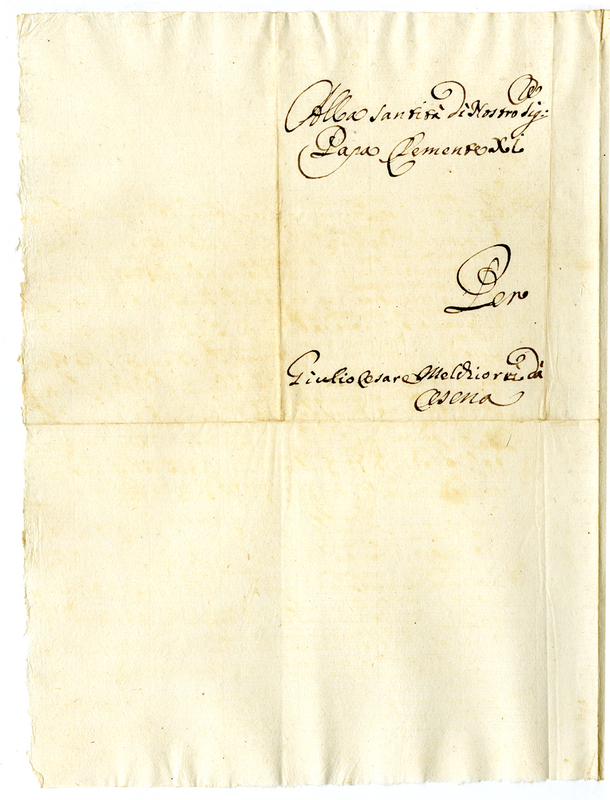 Alla Santità di Nostro Sig:re
Papa Clemente XI
Per
Giulio Cesare Melchiorri di
Cesena